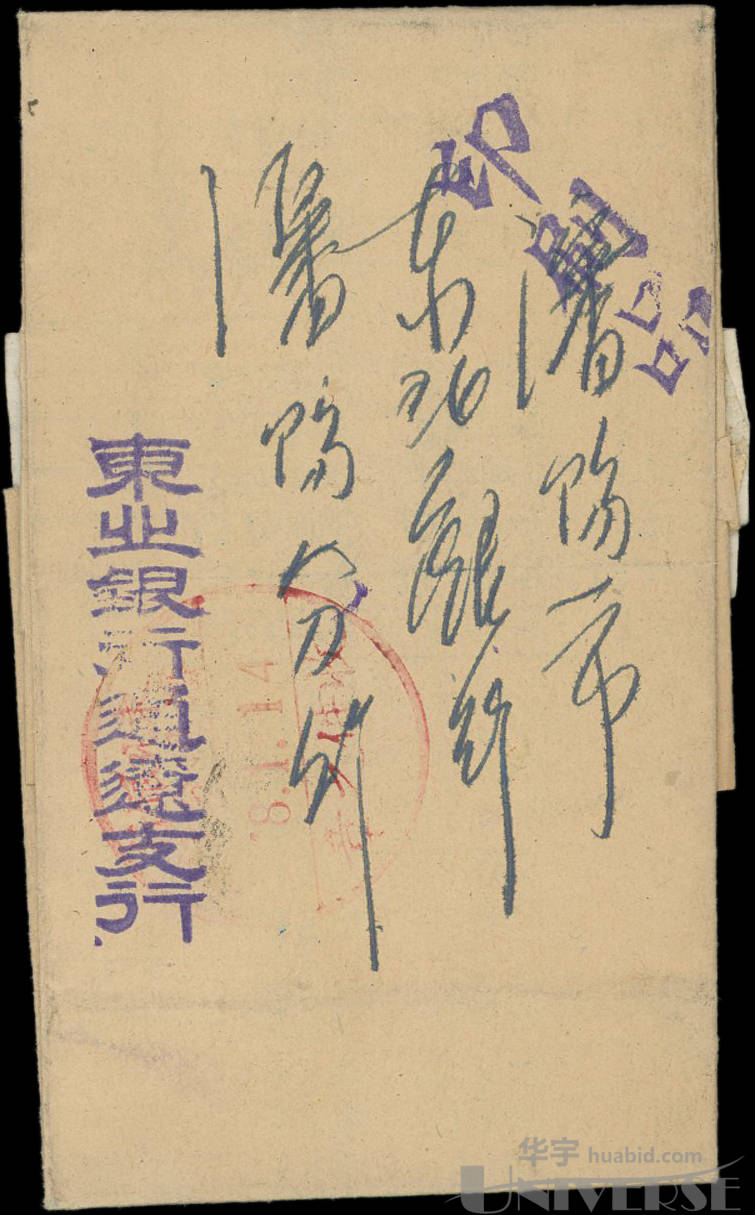 印刷品
瀋陽市
东北銀行
瀋陽分行
東北銀行通遼支行
8.1.14
华宇 huabid.com
UNIVERSE